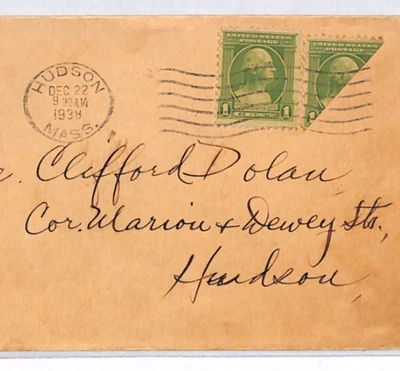 HUDSON
DEC 22
9 30 AM
1938
MASS.
UNITED STATES
POSTAGE
1 1
UNITED STATES
POSTAGE
Clifford Dolan
Cor. Marion + Dewey Sts.,
Hudson,